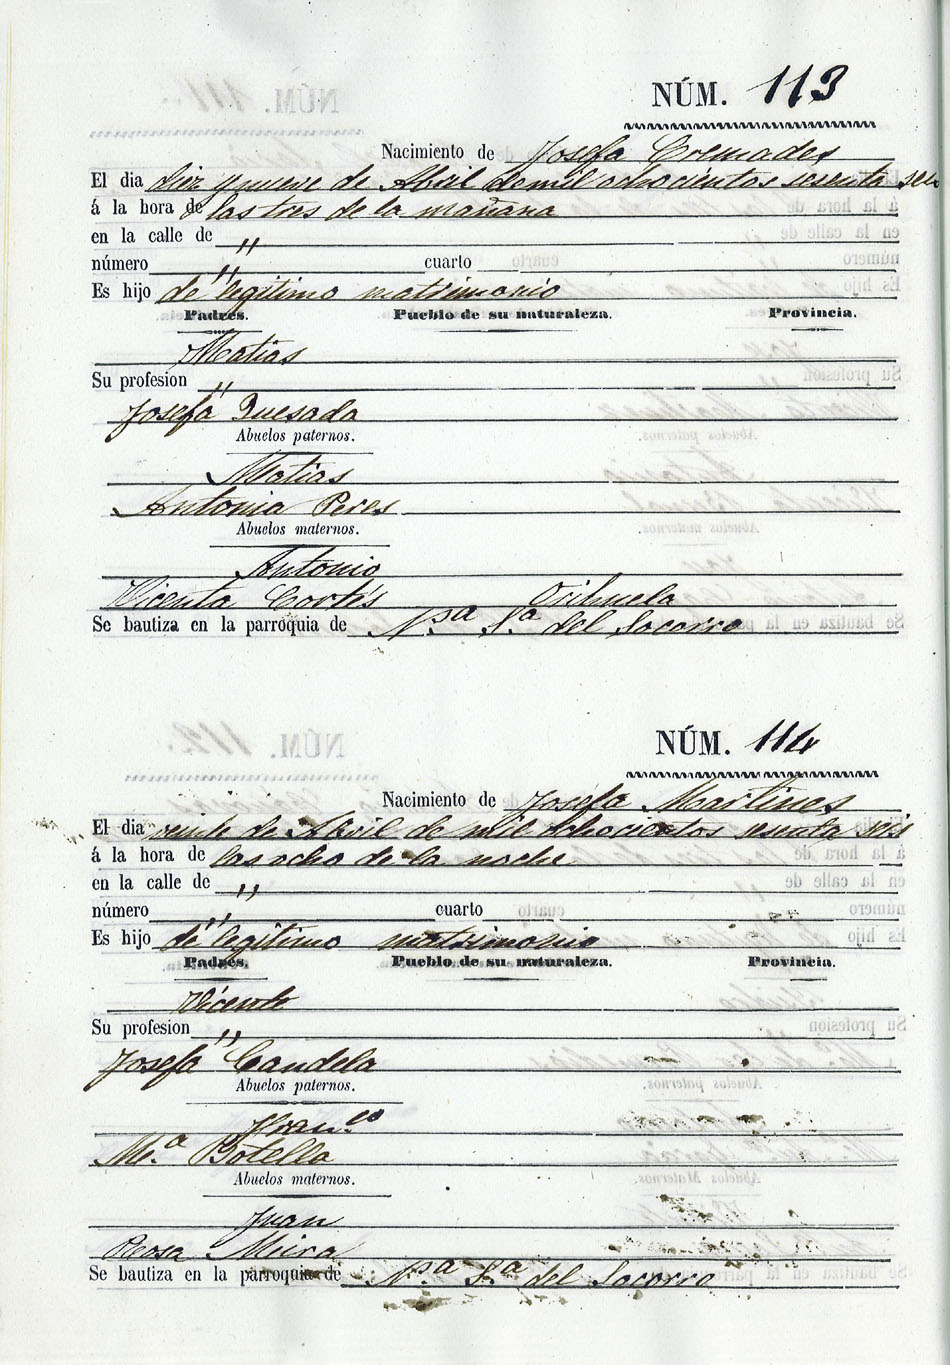 NÚM. 113
Nacimiento de Josefa Cremades
El dia diez y nueve de Abril de mil ochocientos sesenta seis
á la hora de las tres de la mañana
en la calle de "
número " cuarto
Es hijo de legitimo matrimonio
Padres. Pueblo de su naturaleza. Provincia.
Matias
Su profesion "
Josefa Quesada
Abuelos paternos.
Matias
Antonia Peres
Abuelos maternos.
Antonio
Vicenta Cortés Orihuela
Se bautiza en la parroquia de Nª Sª del Socorro
NÚM. 114
Nacimiento de Josefa Martines
El dia veinte de Abril de mil ochocientos sesenta seis
á la hora de las ocho de la noche
en la calle de "
número " cuarto
Es hijo de legitimo matrimonio
Padres. Pueblo de su naturaleza. Provincia.
Vicente
Su profesion "
Josefa Candela
Abuelos paternos.
Franco
Mª Botella
Abuelos maternos.
Juan
Rosa Meira
Se bautiza en la parroquia de Nª Sª del Socorro